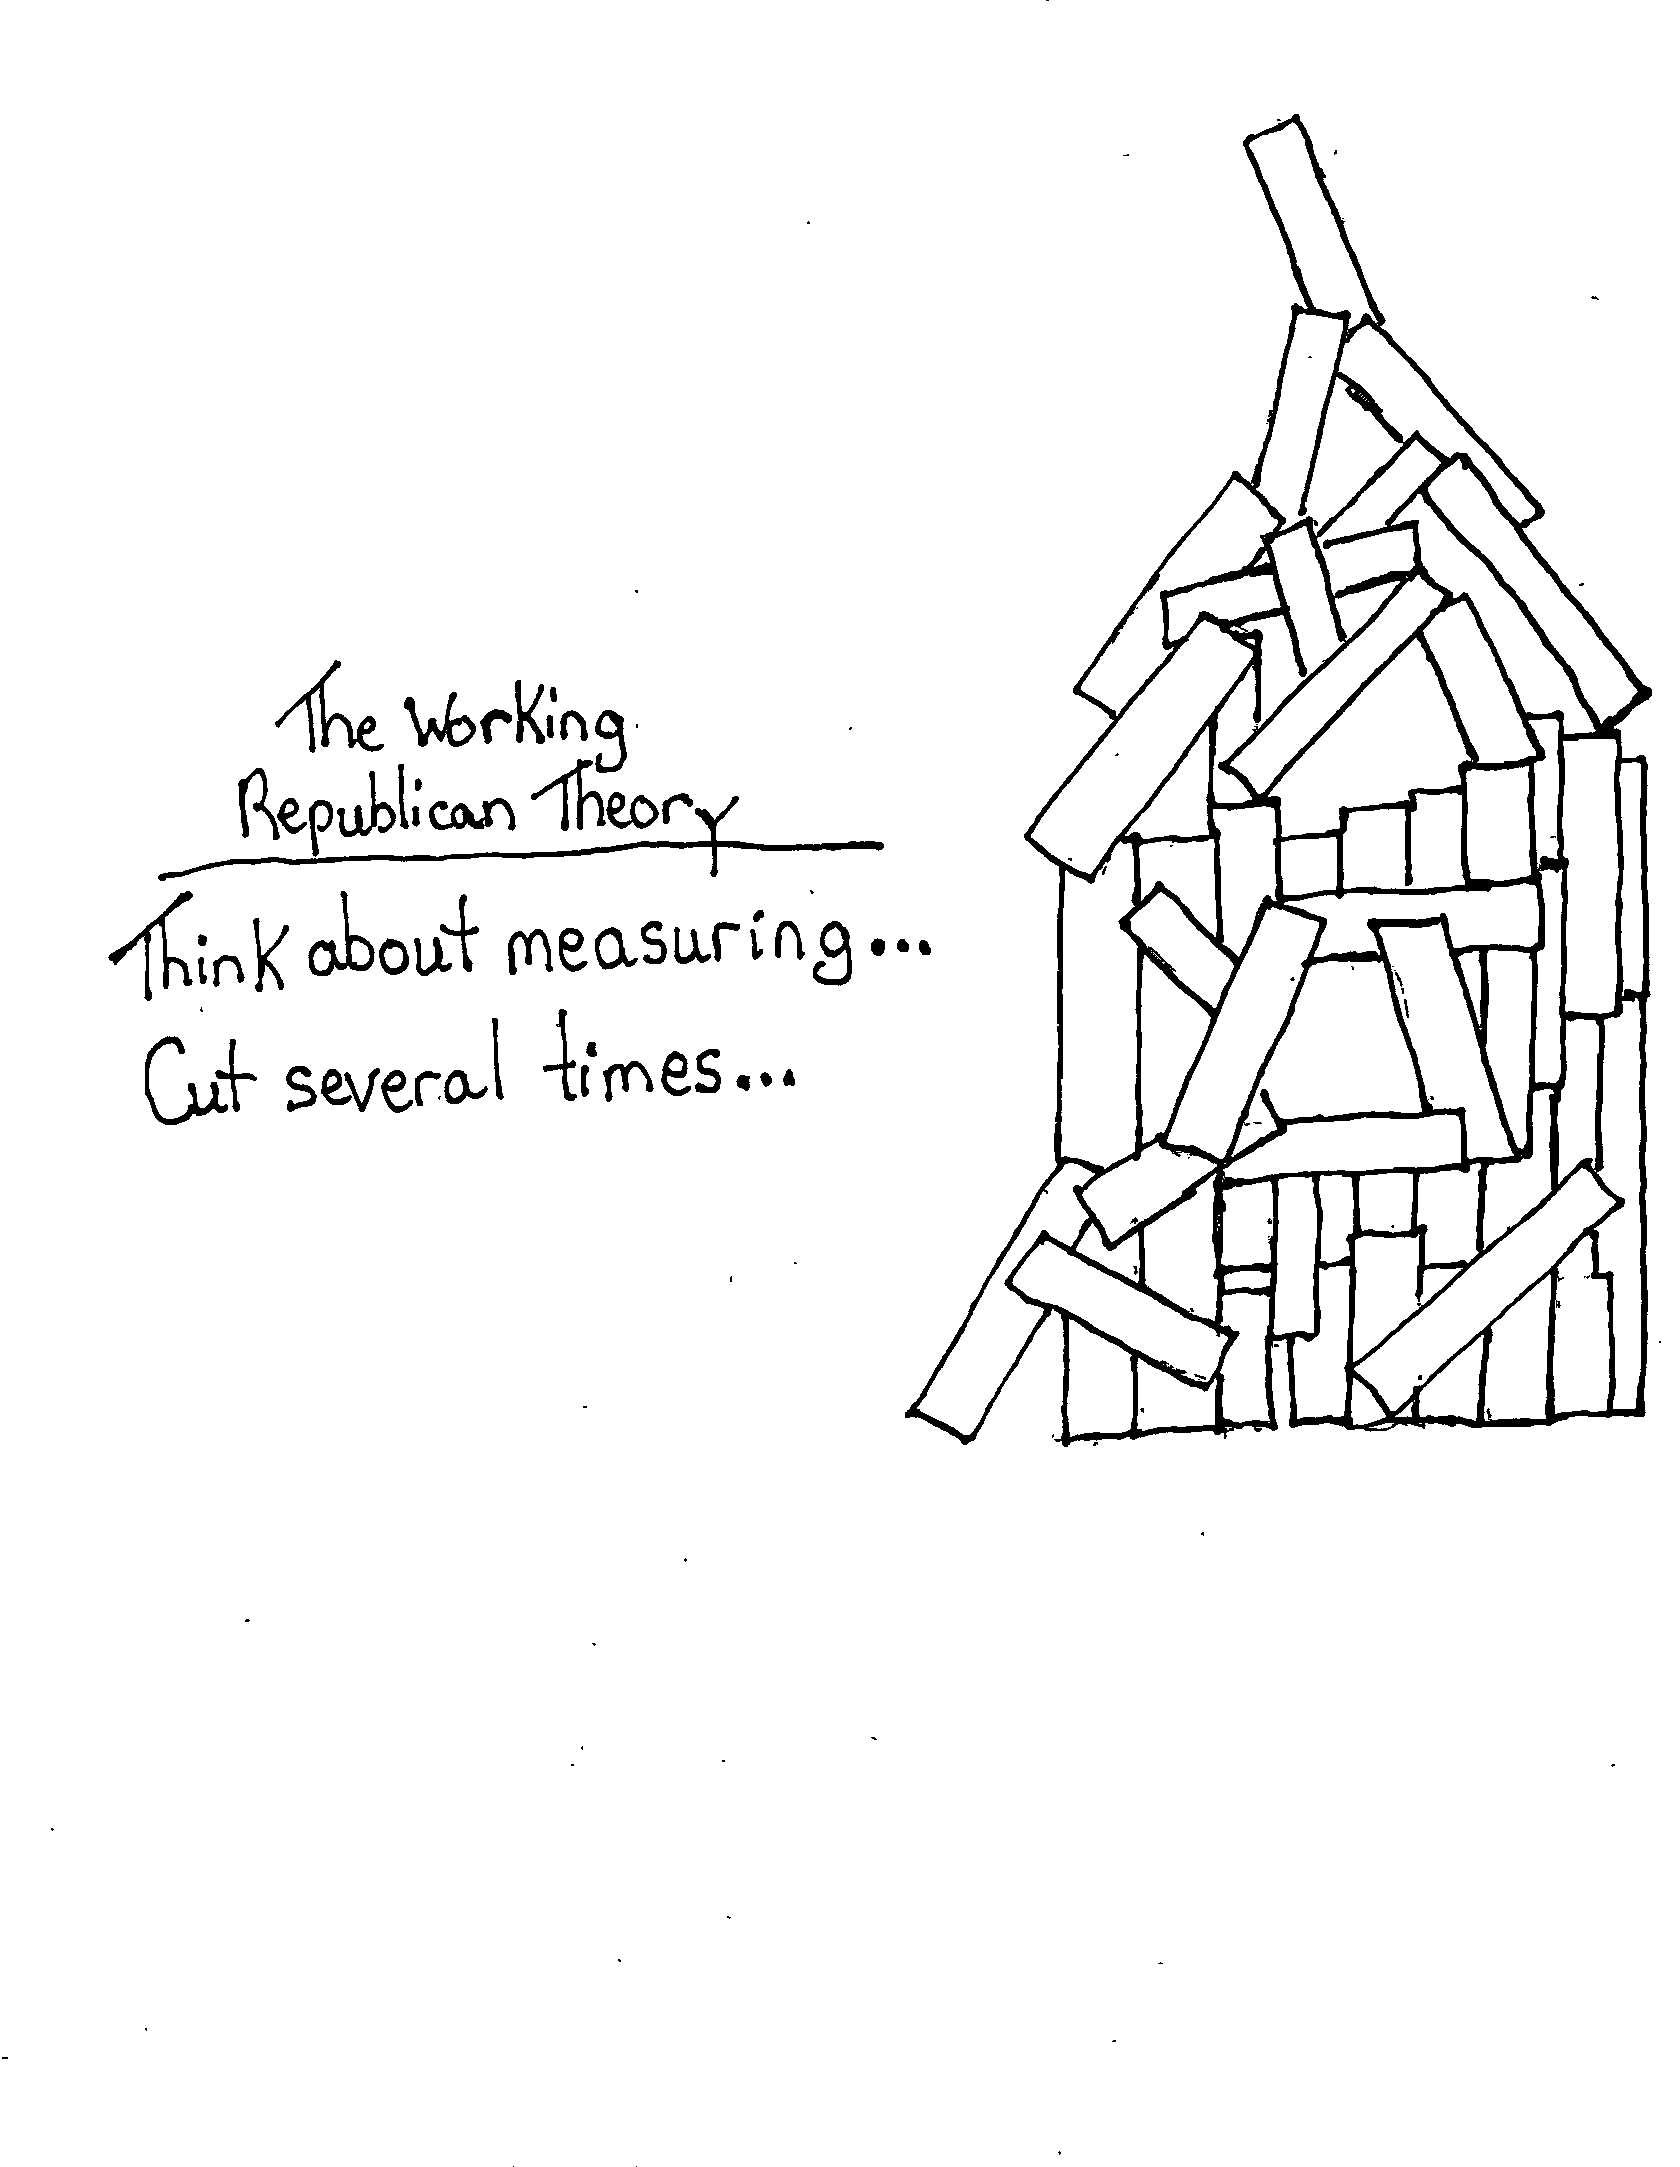 The Working
Republican Theory
Think about measuring...
Cut several times...